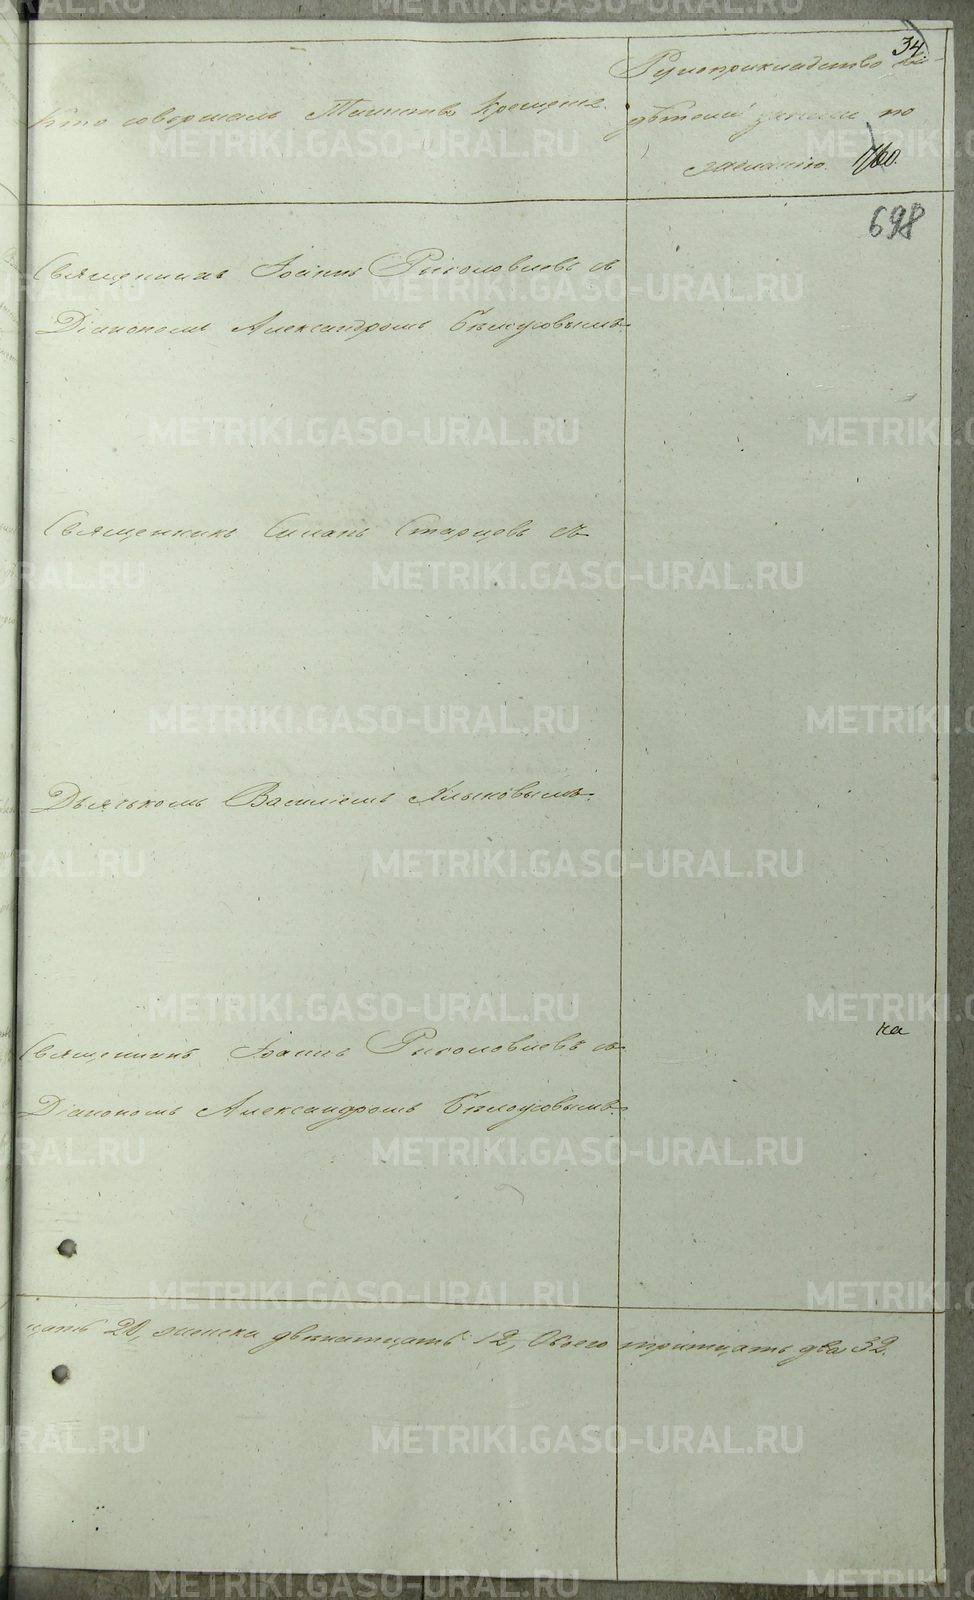 34
Кто совершалъ Таинство Крещенія.
Рукоприкладство сви-
дѣтелей записи по
желанію. 760.
698
Священникъ Іоаннъ Рыболовлевъ съ
Діакономъ Александромъ Бѣлоусовымъ.
Священникъ Симонъ Старцовъ съ
Дьячкомъ Василіемъ Клыковымъ.
Священникъ Іоаннъ Рыболовлевъ съ
ка
Діакономъ Александромъ Бѣлоусовымъ.
цать 20, женска двѣнатцать 12, Обоего тритцать два 32.
METRIKI.GASO-URAL.RU